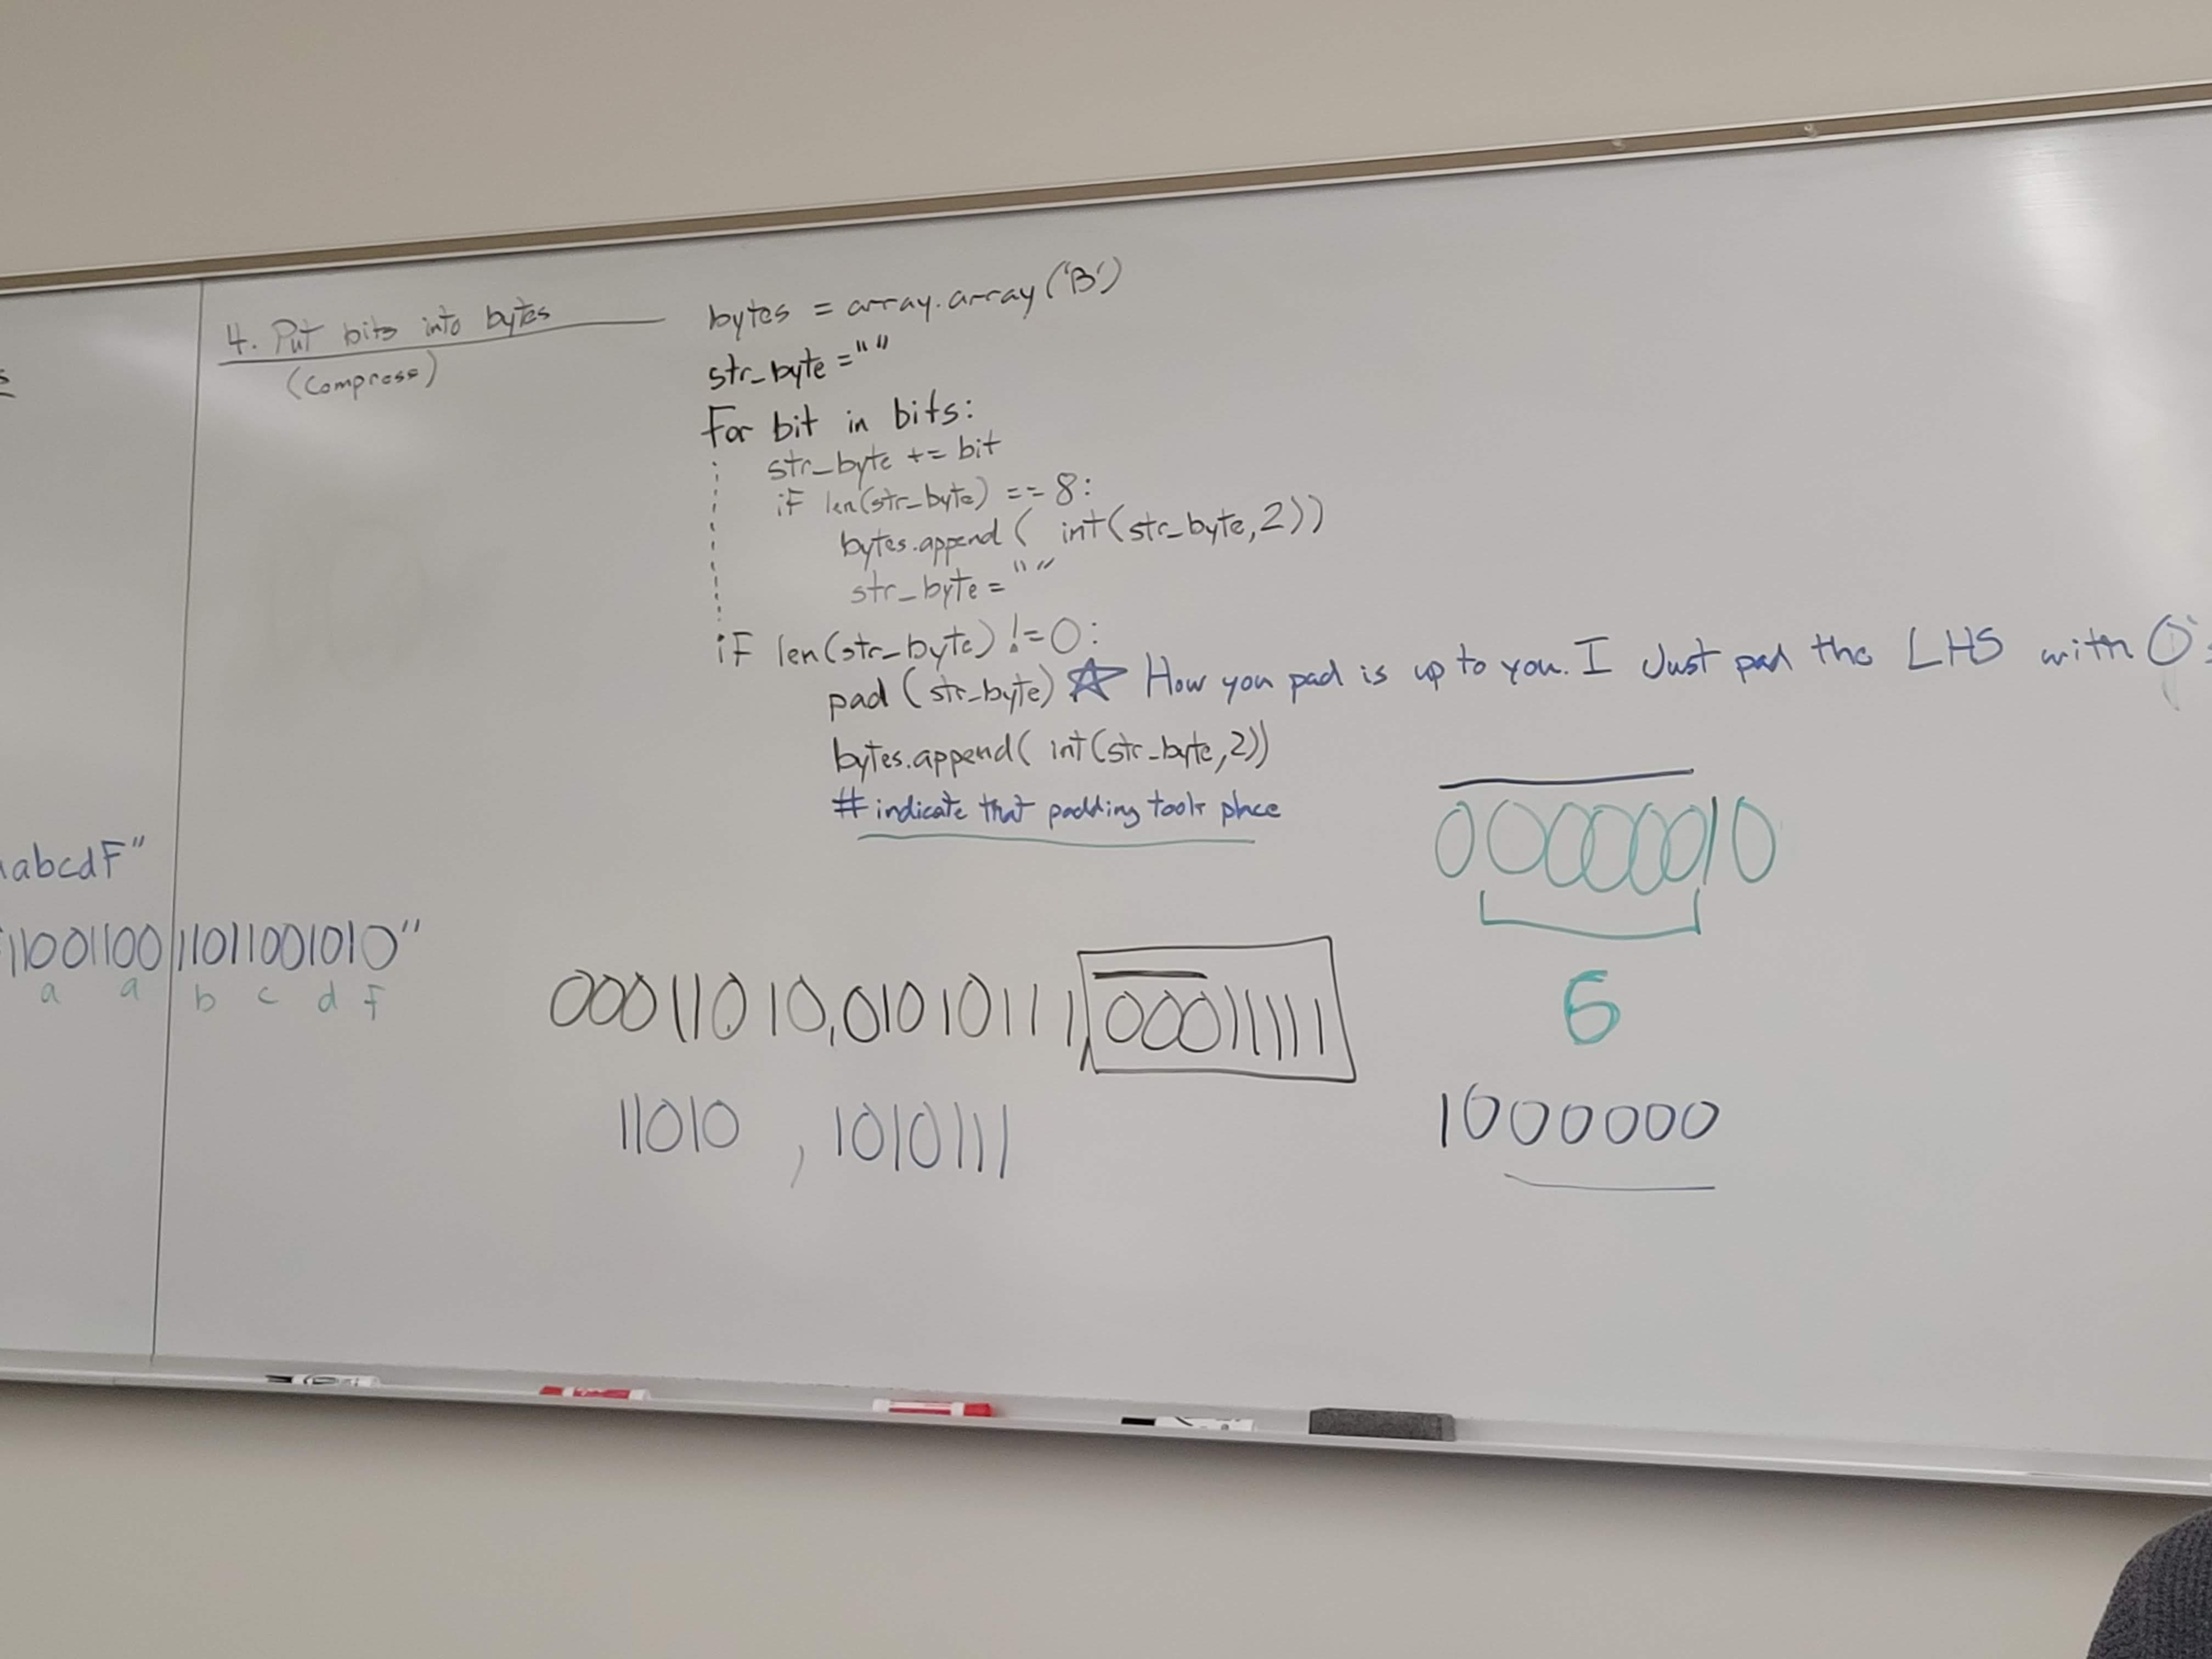 4. Put bits into bytes
(Compress)
bytes = array.array('B')
str_byte = ""
For bit in bits:
str_byte += bit
if len(str_byte) == 8:
bytes.append( int(str_byte,2))
str_byte = ""
if len(str_byte) != 0:
pad (str_byte) ☆ How you pad is up to you. I Just pad the LHS with 0's
bytes.append( int(str_byte,2))
# indicate that padding took place
abcdF"
11001100|11011001010"
a a b c d F
00000010
6
00011010,01010111,00011111
11010 , 1010111
1000000